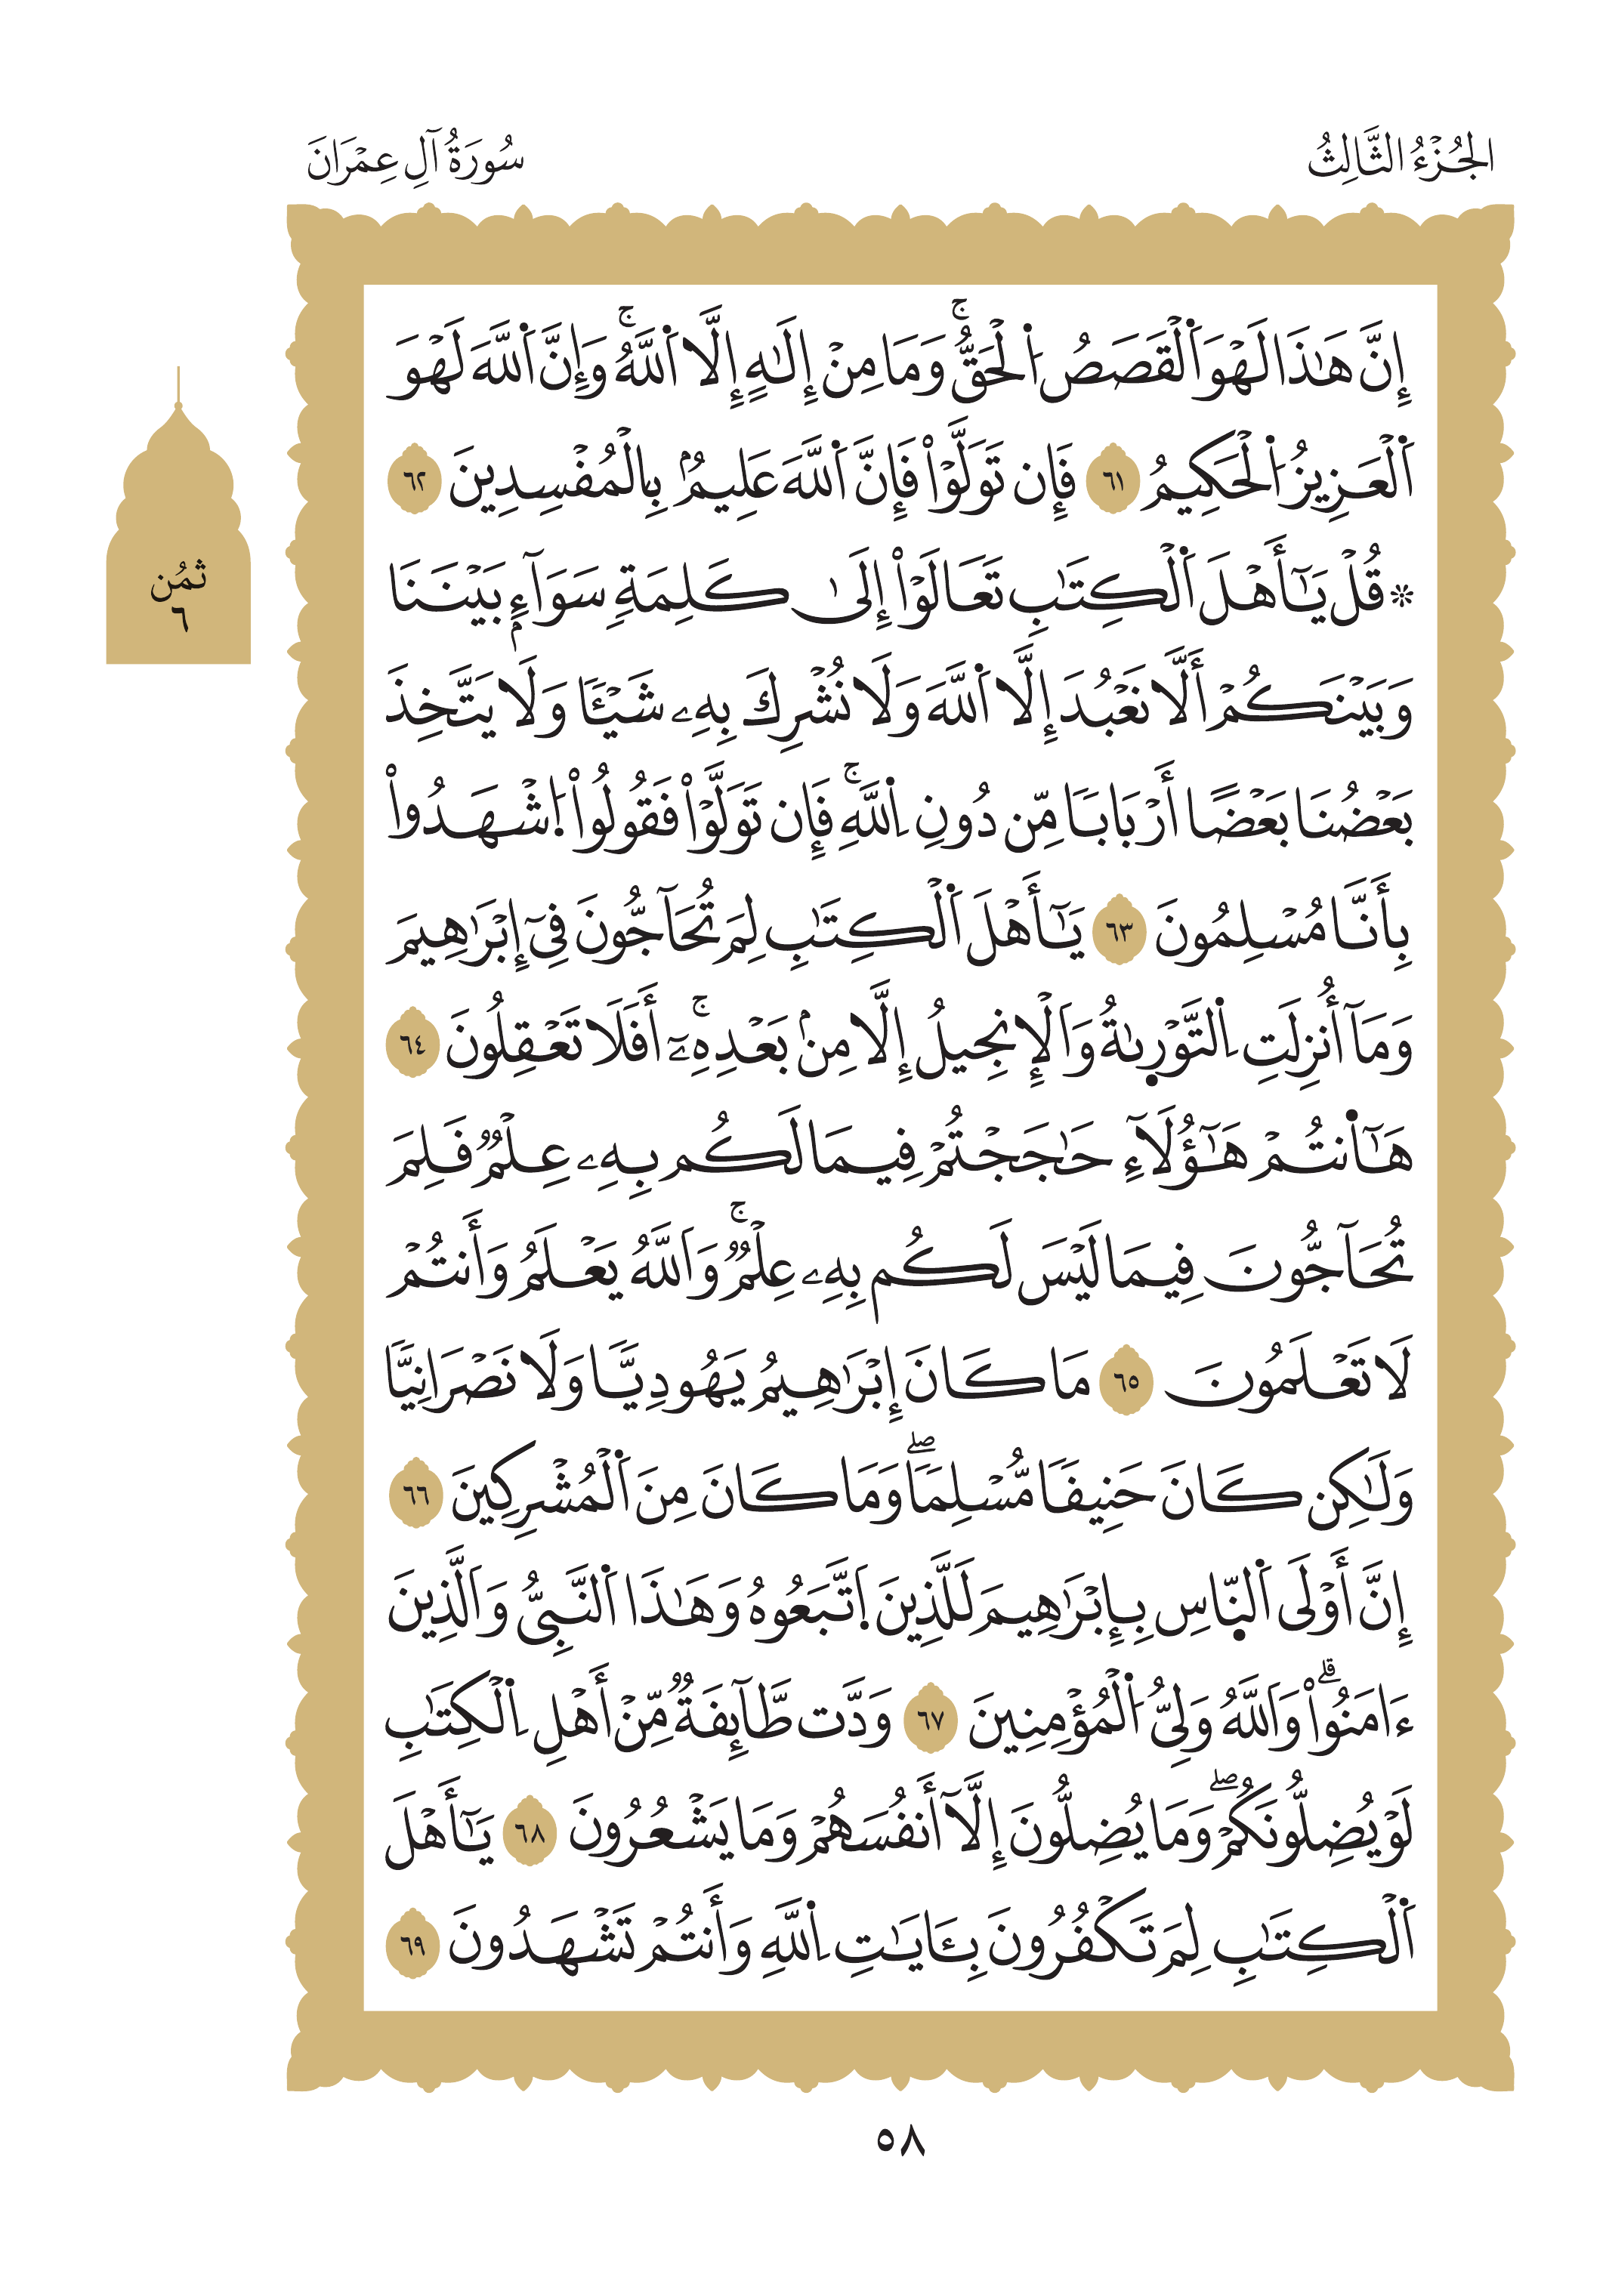 الجُزْءُ الثَّالِثُ
سُورَةُ آلِ عِمْرَانَ
إِنَّ هَٰذَا لَهْوَ اَ۬لْقَصَصُ اُ۬لْحَقُّۚ وَمَا مِنْ إِلَٰهٍ إِلَّا اَ۬للَّهُۚ وَإِنَّ اَ۬للَّهَ لَهْوَ
اَ۬لْعَزِيزُ اُ۬لْحَكِيمُ ٦١ فَإِن تَوَلَّوْاْ فَإِنَّ اَ۬للَّهَ عَلِيمُۢ بِالْمُفْسِدِينَ ٦٢
۞ قُلْ يَٰٓأَهْلَ اَ۬لْكِتَٰبِ تَعَالَوْاْ إِلَىٰ كَلِمَةٖ سَوَآءِۭ بَيْنَنَا
وَبَيْنَكُمْ أَلَّا نَعْبُدَ إِلَّا اَ۬للَّهَ وَلَا نُشْرِكَ بِهِۦ شَيْـٔٗا وَلَا يَتَّخِذَ
بَعْضُنَا بَعْضًا أَرْبَابٗا مِّن دُونِ اِ۬للَّهِۚ فَإِن تَوَلَّوْاْ فَقُولُواْ اُ۪شْهَدُواْ
بِأَنَّا مُسْلِمُونَ ٦٣ يَٰٓأَهْلَ اَ۬لْكِتَٰبِ لِمَ تُحَآجُّونَ فِىٓ إِبْرَٰهِيمَ
وَمَآ أُنزِلَتِ اِ۬لتَّوْر۪ىٰةُ وَالْإِنجِيلُ إِلَّا مِنۢ بَعْدِهِۦٓۚ أَفَلَا تَعْقِلُونَ ٦٤
هَٰٓا۬نتُمْ هَٰٓؤُلَآءِ حَٰجَجْتُمْ فِيمَا لَكُم بِهِۦ عِلْمٞ فَلِمَ
تُحَآجُّونَ فِيمَا لَيْسَ لَكُم بِهِۦ عِلْمٞۚ وَاللَّهُ يَعْلَمُ وَأَنتُمْ
لَا تَعْلَمُونَ ٦٥ مَا كَانَ إِبْرَٰهِيمُ يَهُودِيّٗا وَلَا نَصْرَانِيّٗا
وَلَٰكِن كَانَ حَنِيفٗا مُّسْلِمٗاۖ وَمَا كَانَ مِنَ اَ۬لْمُشْرِكِينَ ٦٦
إِنَّ أَوْلَى اَ۬لنّ۪اسِ بِإِبْرَٰهِيمَ لَلَّذِينَ اَ۪تَّبَعُوهُ وَهَٰذَا اَ۬لنَّبِىُّ وَالَّذِينَ
ءَامَنُواْۗ وَاللَّهُ وَلِىُّ اُ۬لْمُؤْمِنِينَ ٦٧ وَدَّت طَّآئِفَةٞ مِّنْ أَهْلِ اِ۬لْكِتَٰبِ
لَوْ يُضِلُّونَكُمْۖ وَمَا يُضِلُّونَ إِلَّآ أَنفُسَهُمْ وَمَا يَشْعُرُونَ ٦٨ يَٰٓأَهْلَ
اَ۬لْكِتَٰبِ لِمَ تَكْفُرُونَ بِـَٔايَٰتِ اِ۬للَّهِ وَأَنتُمْ تَشْهَدُونَ ٦٩
ثمُن
٦
٥٨